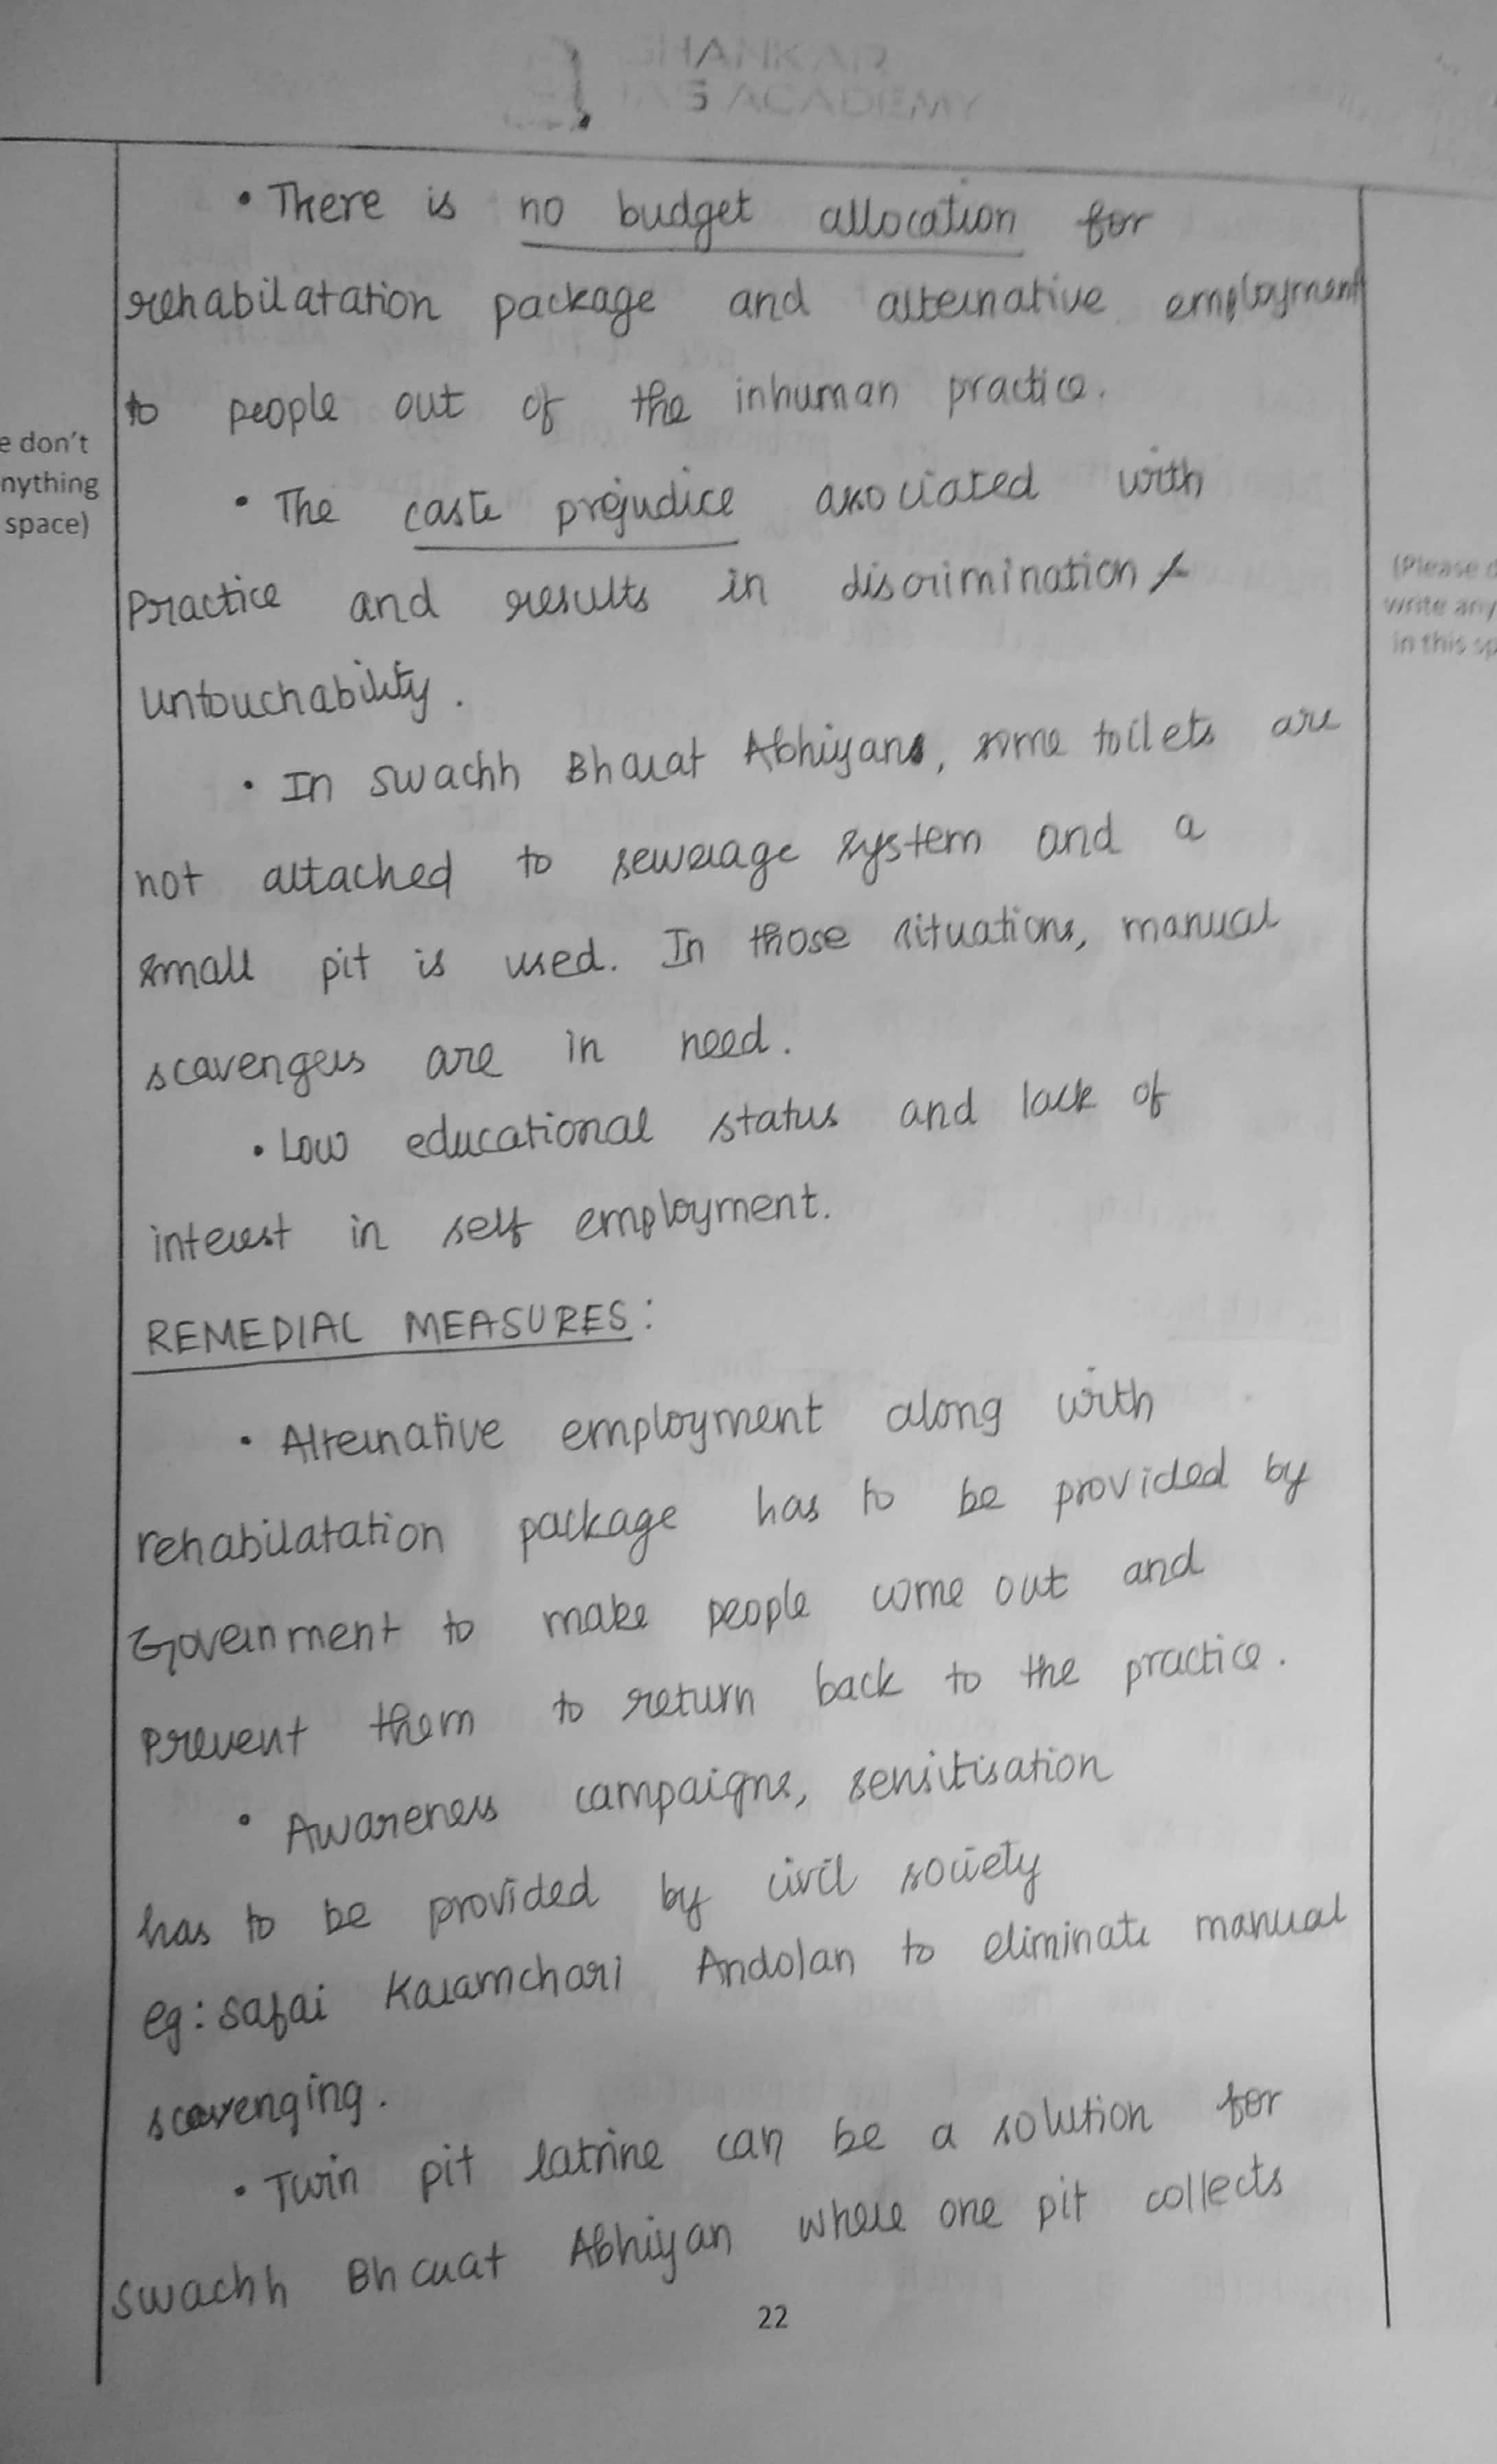 SHANKAR
IAS ACADEMY
• There is no budget allocation for
rehabilatation package and alternative employment
to people out of the inhuman practice.
e don't
nything
space)
• The caste prejudice associated with
Practice and results in discrimination &
untouchability.
(Please d
write any
in this sp
• In Swachh Bharat Abhiyans, some toilets are
not attached to sewerage system and a
small pit is used. In those situations, manual
scavengers are in need.
• Low educational status and lack of
interest in self employment.
REMEDIAL MEASURES:
• Alternative employment along with
rehabilatation package has to be provided by
Government to make people come out and
prevent them to return back to the practice.
• Awareness campaigns, sensitisation
has to be provided by civil society
eg: Safai Karamchari Andolan to eliminate manual
scavenging.
• Twin pit latrine can be a solution for
Swachh Bharat Abhiyan where one pit collects
22